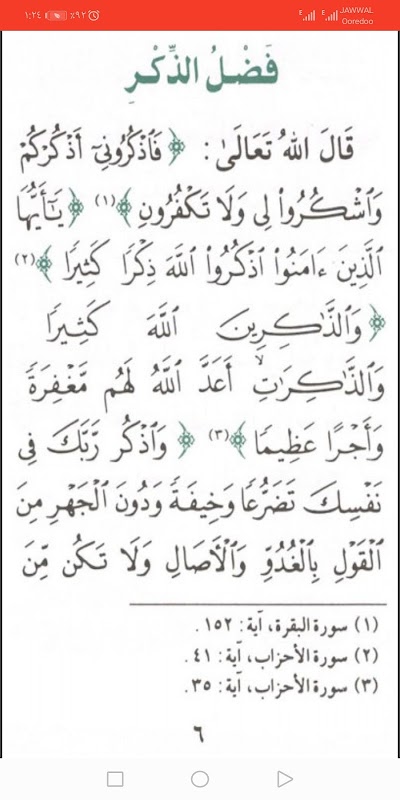 ١:٢٤ ٪٩٢ JAWWAL
Ooredoo
فَضْلُ الذِّكْرِ
قَالَ اللهُ تَعَالَىٰ : ﴿ فَٱذْكُرُونِيٓ أَذْكُرْكُمْ
وَٱشْكُرُوا۟ لِى وَلَا تَكْفُرُونِ ﴾ (١) ﴿ يَـٰٓأَيُّهَا
ٱلَّذِينَ ءَامَنُوا۟ ٱذْكُرُوا۟ ٱللَّهَ ذِكْرًا كَثِيرًا ﴾ (٢)
﴿ وَٱلذَّٰكِرِينَ ٱللَّهَ كَثِيرًا
وَٱلذَّٰكِرَٰتِ أَعَدَّ ٱللَّهُ لَهُم مَّغْفِرَةً
وَأَجْرًا عَظِيمًا ﴾ (٣) ﴿ وَٱذْكُر رَّبَّكَ فِى
نَفْسِكَ تَضَرُّعًا وَخِيفَةً وَدُونَ ٱلْجَهْرِ مِنَ
ٱلْقَوْلِ بِٱلْغُدُوِّ وَٱلْأَصَالِ وَلَا تَكُن مِّنَ
(١) سورة البقرة، آية : ١٥٢ .
(٢) سورة الأحزاب، آية : ٤١ .
(٣) سورة الأحزاب، آية : ٣٥ .
٦